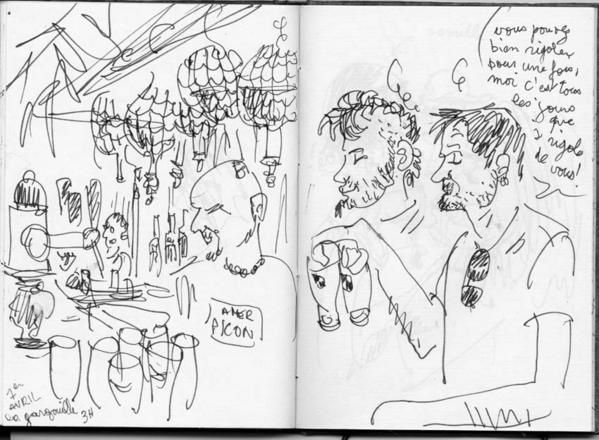 AMER
PICON
1er
AVRIL
La gargouille 3H
vous pouvez
bien rigoler
pour une fois,
moi c'est tous
les jours
que
je rigole
de vous!